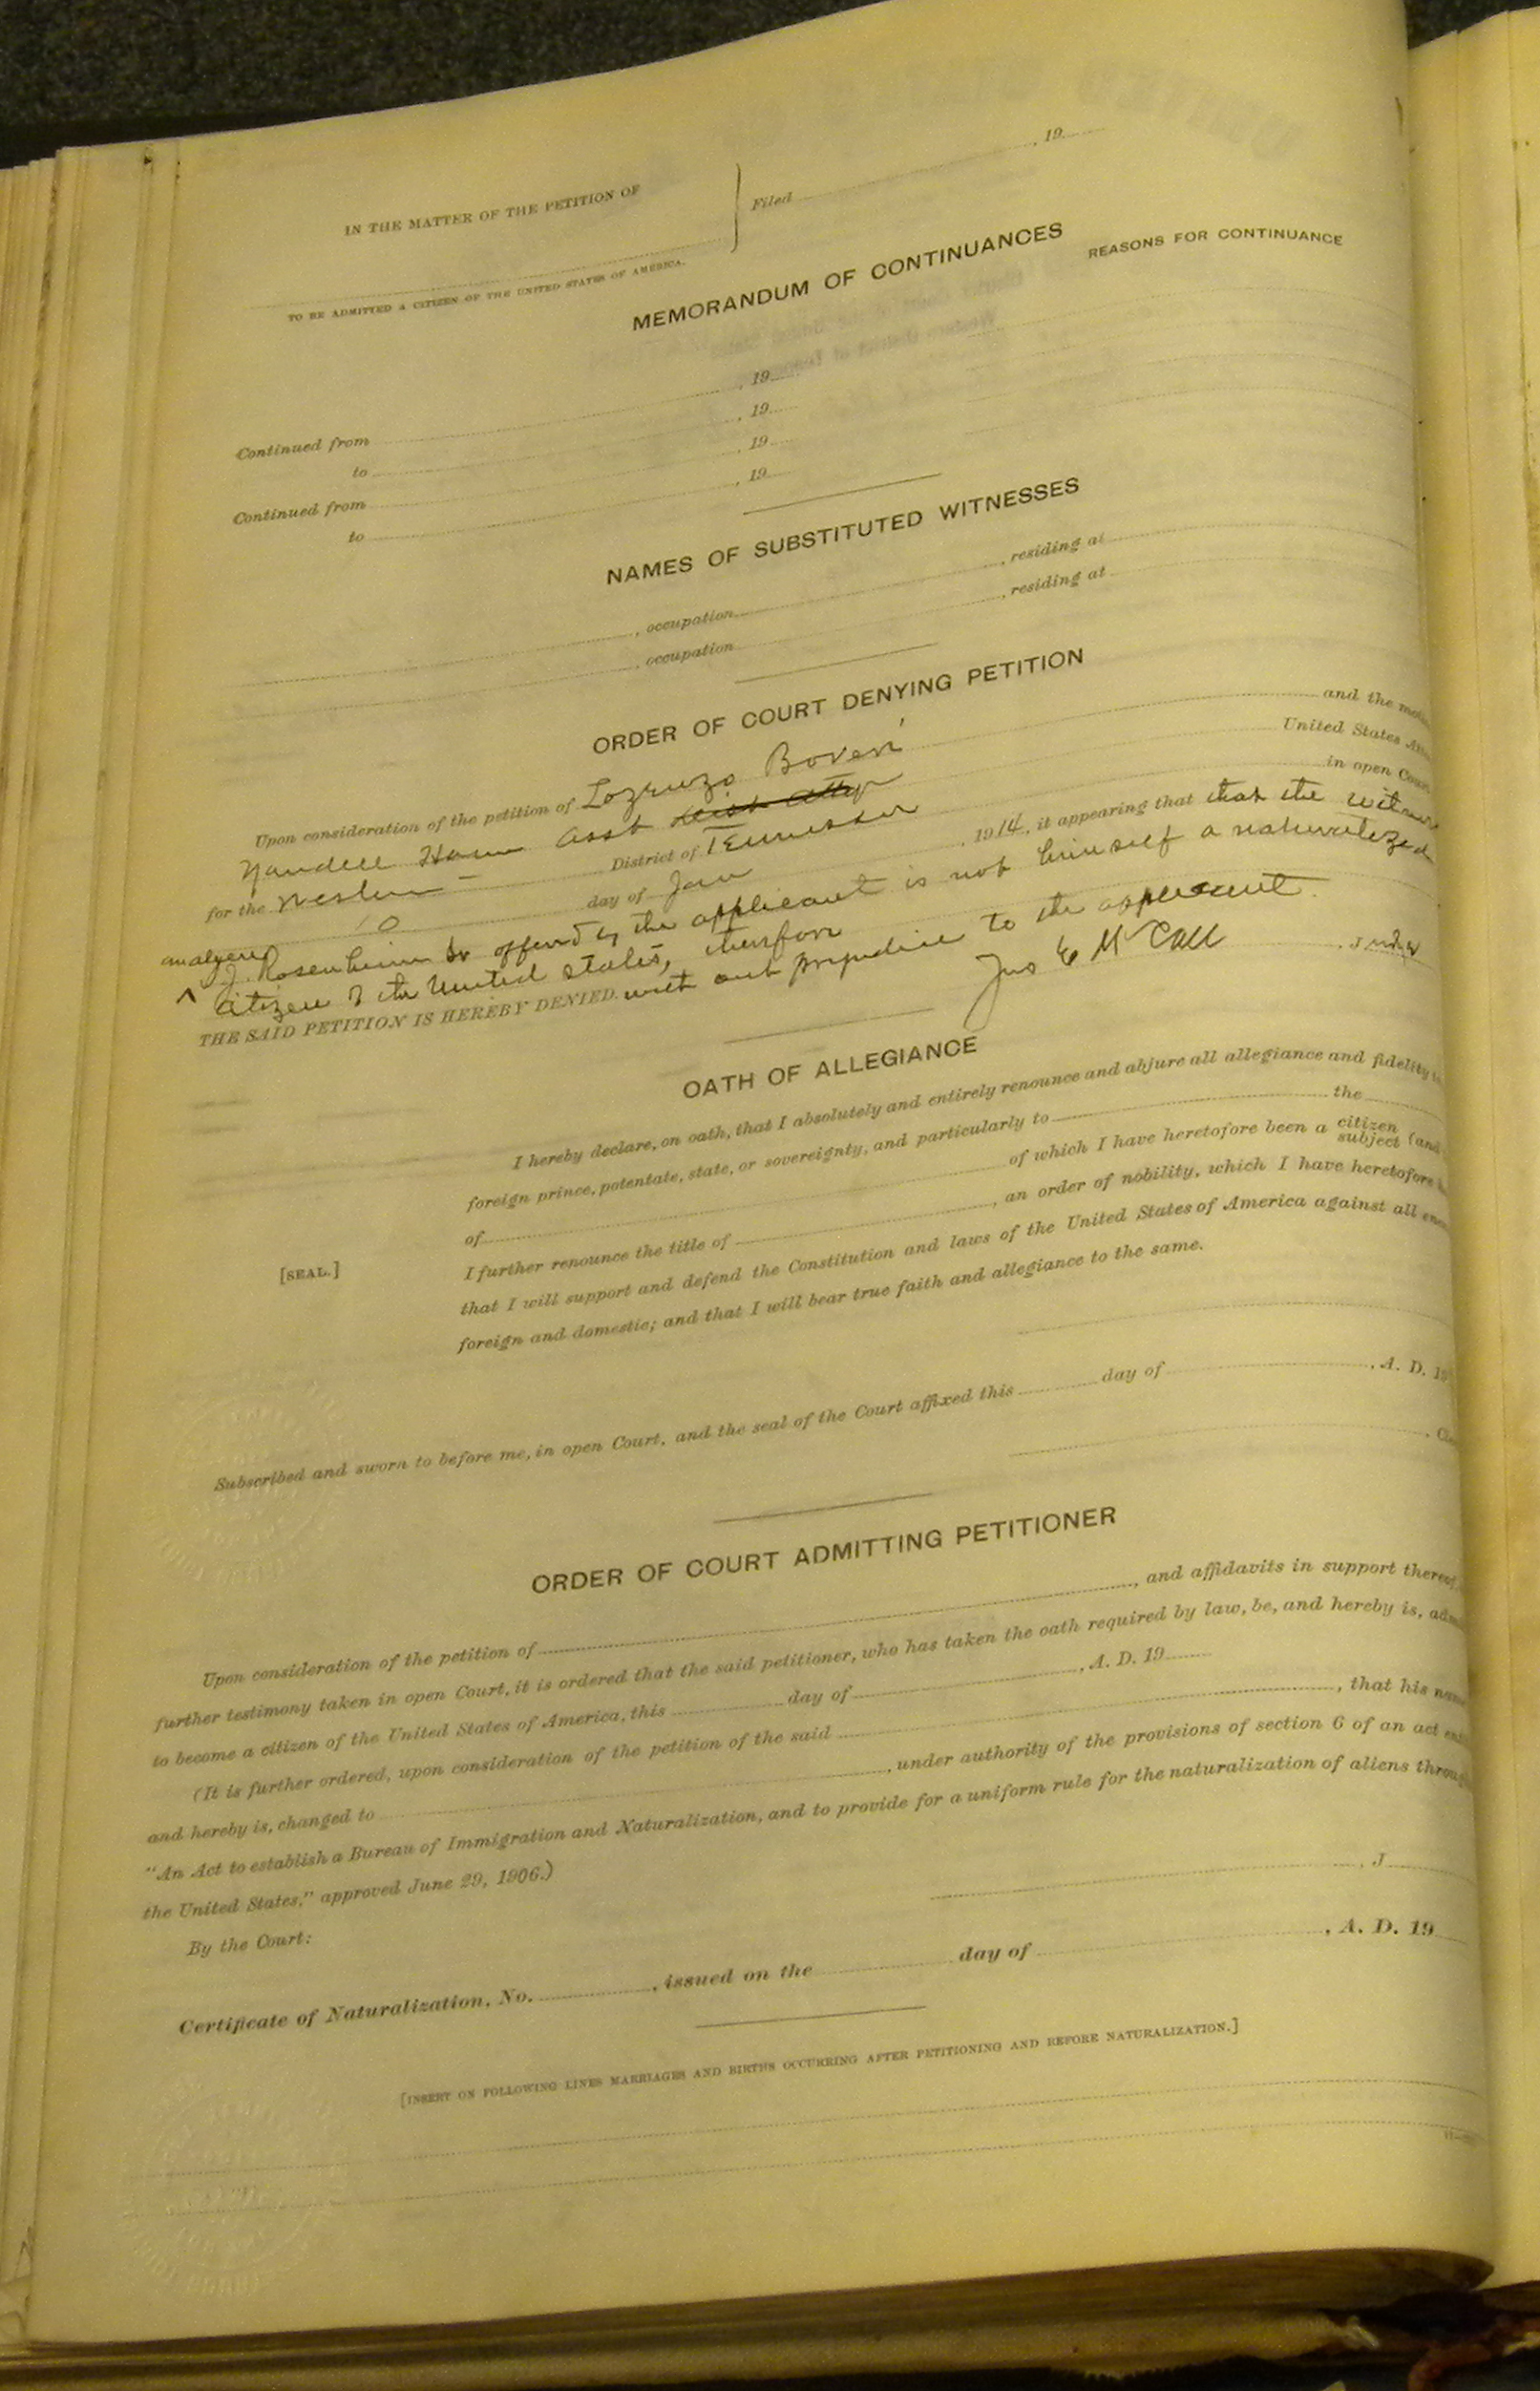 IN THE MATTER OF THE PETITION OF
Filed , 19
TO BE ADMITTED A CITIZEN OF THE UNITED STATES OF AMERICA.
MEMORANDUM OF CONTINUANCES
REASONS FOR CONTINUANCE
Continued from , 19
to , 19
Continued from , 19
to , 19
NAMES OF SUBSTITUTED WITNESSES
, occupation , residing at
, occupation , residing at
ORDER OF COURT DENYING PETITION
Upon consideration of the petition of Lozenzo Boveri and the
Yandell Haun Asst Dist Atty United States
for the Western District of Tennessee in open
10 day of Jan , 1914, it appearing that that the witness
J. Rosenheim Sr offered by the applicant is not himself a naturalized
citizen of the United States, therefore
THE SAID PETITION IS HEREBY DENIED. with out prejudice to the applicant.
Jno E McCall , Judge
OATH OF ALLEGIANCE
I hereby declare, on oath, that I absolutely and entirely renounce and abjure all allegiance and fidelity
foreign prince, potentate, state, or sovereignty, and particularly to the
of of which I have heretofore been a citizen subject (and
I further renounce the title of , an order of nobility, which I have heretofore
[SEAL.]
that I will support and defend the Constitution and laws of the United States of America against all
foreign and domestic; and that I will bear true faith and allegiance to the same.
Subscribed and sworn to before me, in open Court, and the seal of the Court affixed this day of , A. D. 19
ORDER OF COURT ADMITTING PETITIONER
Upon consideration of the petition of , and affidavits in support
further testimony taken in open Court, it is ordered that the said petitioner, who has taken the oath required by law, be, and hereby is,
to become a citizen of the United States of America, this day of , A. D. 19
(It is further ordered, upon consideration of the petition of the said , that his
and hereby is, changed to , under authority of the provisions of section 6 of an act
"An Act to establish a Bureau of Immigration and Naturalization, and to provide for a uniform rule for the naturalization of aliens
the United States," approved June 29, 1906.)
By the Court: , J
Certificate of Naturalization, No. , issued on the day of , A. D. 19
[INSERT ON FOLLOWING LINES MARRIAGES AND BIRTHS OCCURRING AFTER PETITIONING AND BEFORE NATURALIZATION.]